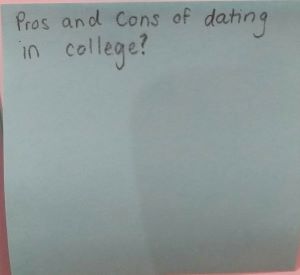 Pros and Cons of dating
in college?